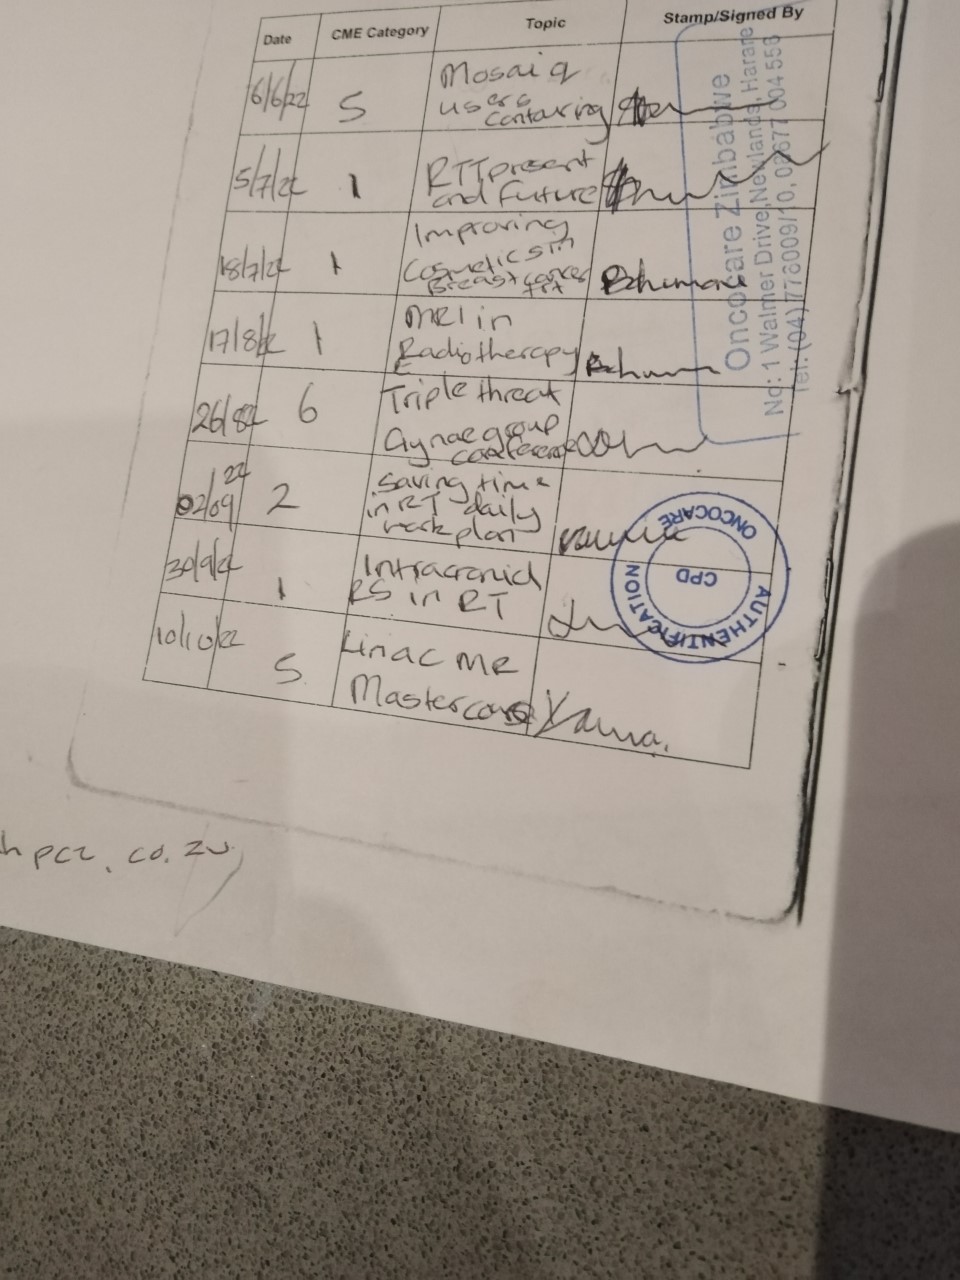 Date CME Category Topic Stamp/Signed By
6/6/22 5 Mosaiq
users
contouring
5/7/22 1 RTT present
and Future
18/7/22 1 Improving
Cosmetics in
Breast cancer
trt
17/8/22 1 MRI in
Radiotherapy
26/8/22 6 Triple threat
Gynae group
conference
02/09/22 2 Saving time
in RT daily
work plan
30/9/22 1 Intracranial
RS in RT
10/10/22 5 Linac MR
Mastercourse
Oncocare Zimbabwe
No: 1 Walmer Drive, Newlands, Harare
Tel: (04) 776009/10, 08677 004 556
ONCOCARE
CPD
AUTHENTIFICATION
hpcz.co.zw